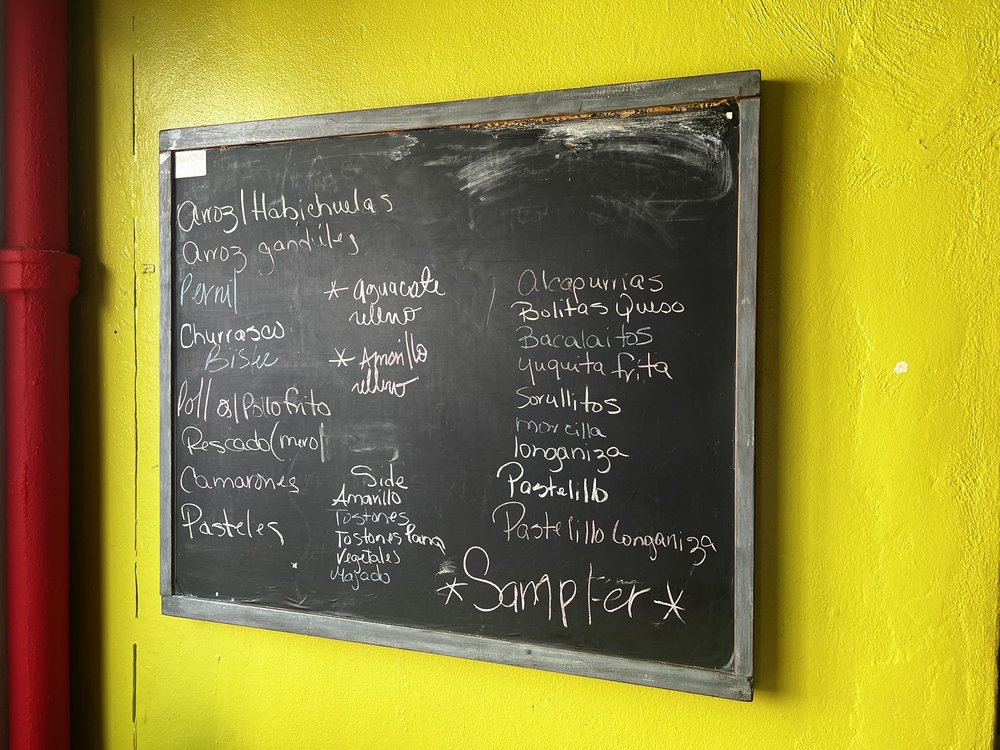 Arroz/Habichuelas
Arroz gandules
Pernil
Churrasco
Bistec
Pollo/Pollo frito
Pescado(mero)
Camarones
Pasteles
* aguacate
relleno
* Amarillo
relleno
Side
Amarillo
Tostones
Tostones Pana
Vegetales
Majado
Alcapurrias
Bolitas Queso
Bacalaitos
yuquita frita
Sorullitos
morcilla
longaniza
Pastelillo
Pastelillo Longaniza
*Sampler*